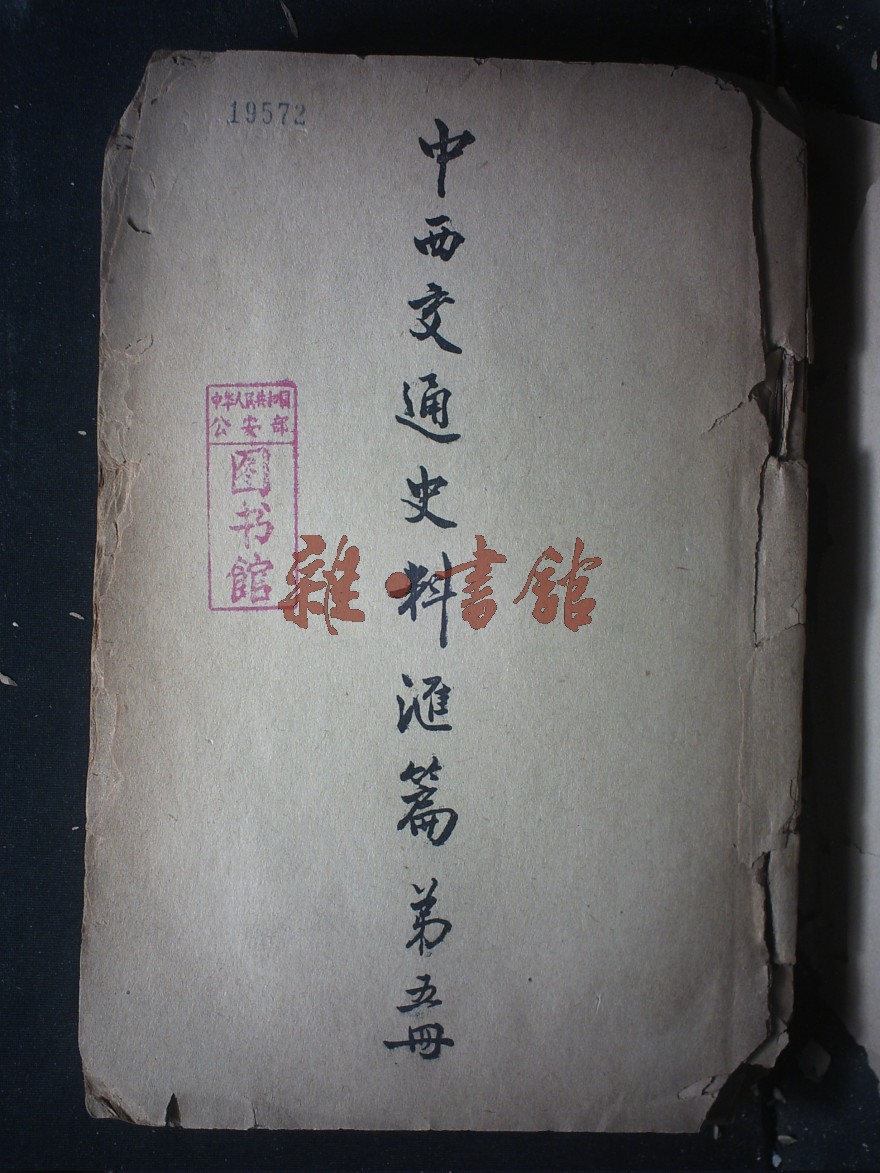 19572
中西交通史料滙篇第五冊
中华人民共和国
公安部
图书馆
雜·書館